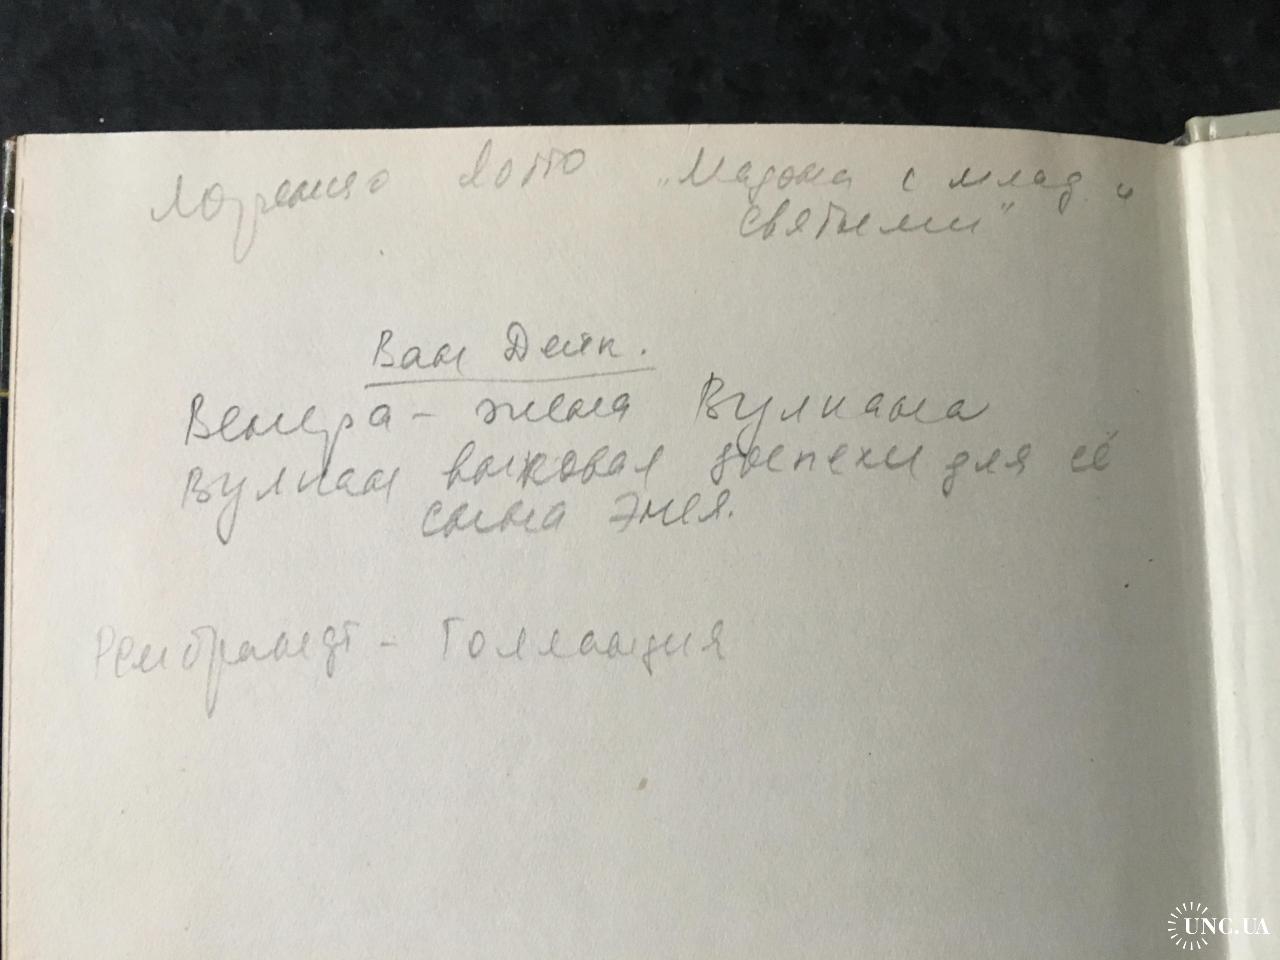 Лоренцо Лотто „Мадона с млад. и
святыми"
Ван Дейк.
Венера - жена Вулкана
Вулкан выковал доспехи для её
сына Энея.
Рембрандт - Голландия
UNC.UA